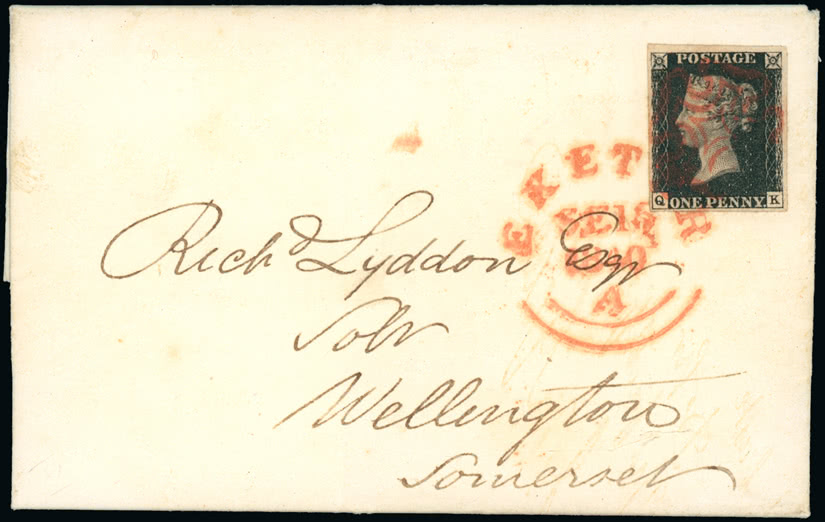 POSTAGE
Q ONE PENNY K
EXETER
A
Richd Lyddon Esqr
Solr
Wellington
Somerset